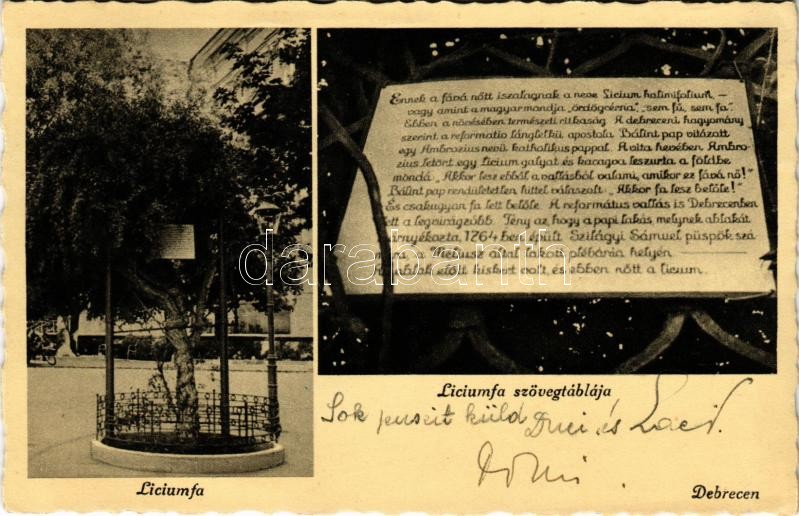 Ennek a fává nőtt iszalagnak a neve Licium halimifolium, —
vagy amint a magyar mondja „ördögcérna", „sem fű, sem fa".
Ebben a növésében természeti ritkaság. A debreceni hagyomány
szerint a reformatio lánglelkű apostola Bálint pap vitázott
egy Ambrozius nevű katholikus pappal. A vita hevében Ambro-
zius letört egy Licium galyat és kacagva leszurta a földbe
mondá „Akkor lesz ebből a vallásból valami, amikor ez fává nő!"
Bálint pap rendületetlen hittel válaszolt: „Akkor fa lesz belőle!"
És csakugyan fa lett belőle. A református vallás is Debrecenben
lett a legvirágzóbb. Tény az, hogy a papi lakás, melynek ablakát
árnyékozta, 1764 ben épült Szilágyi Sámuel püspök szá-
által lakott plébánia helyén
ablak előtt kiskert volt, és ebben nőtt a licium.
darabanth.com
Liciumfa szövegtáblája
Sok puszit küld Duci és Laci.
Liciumfa
Debrecen